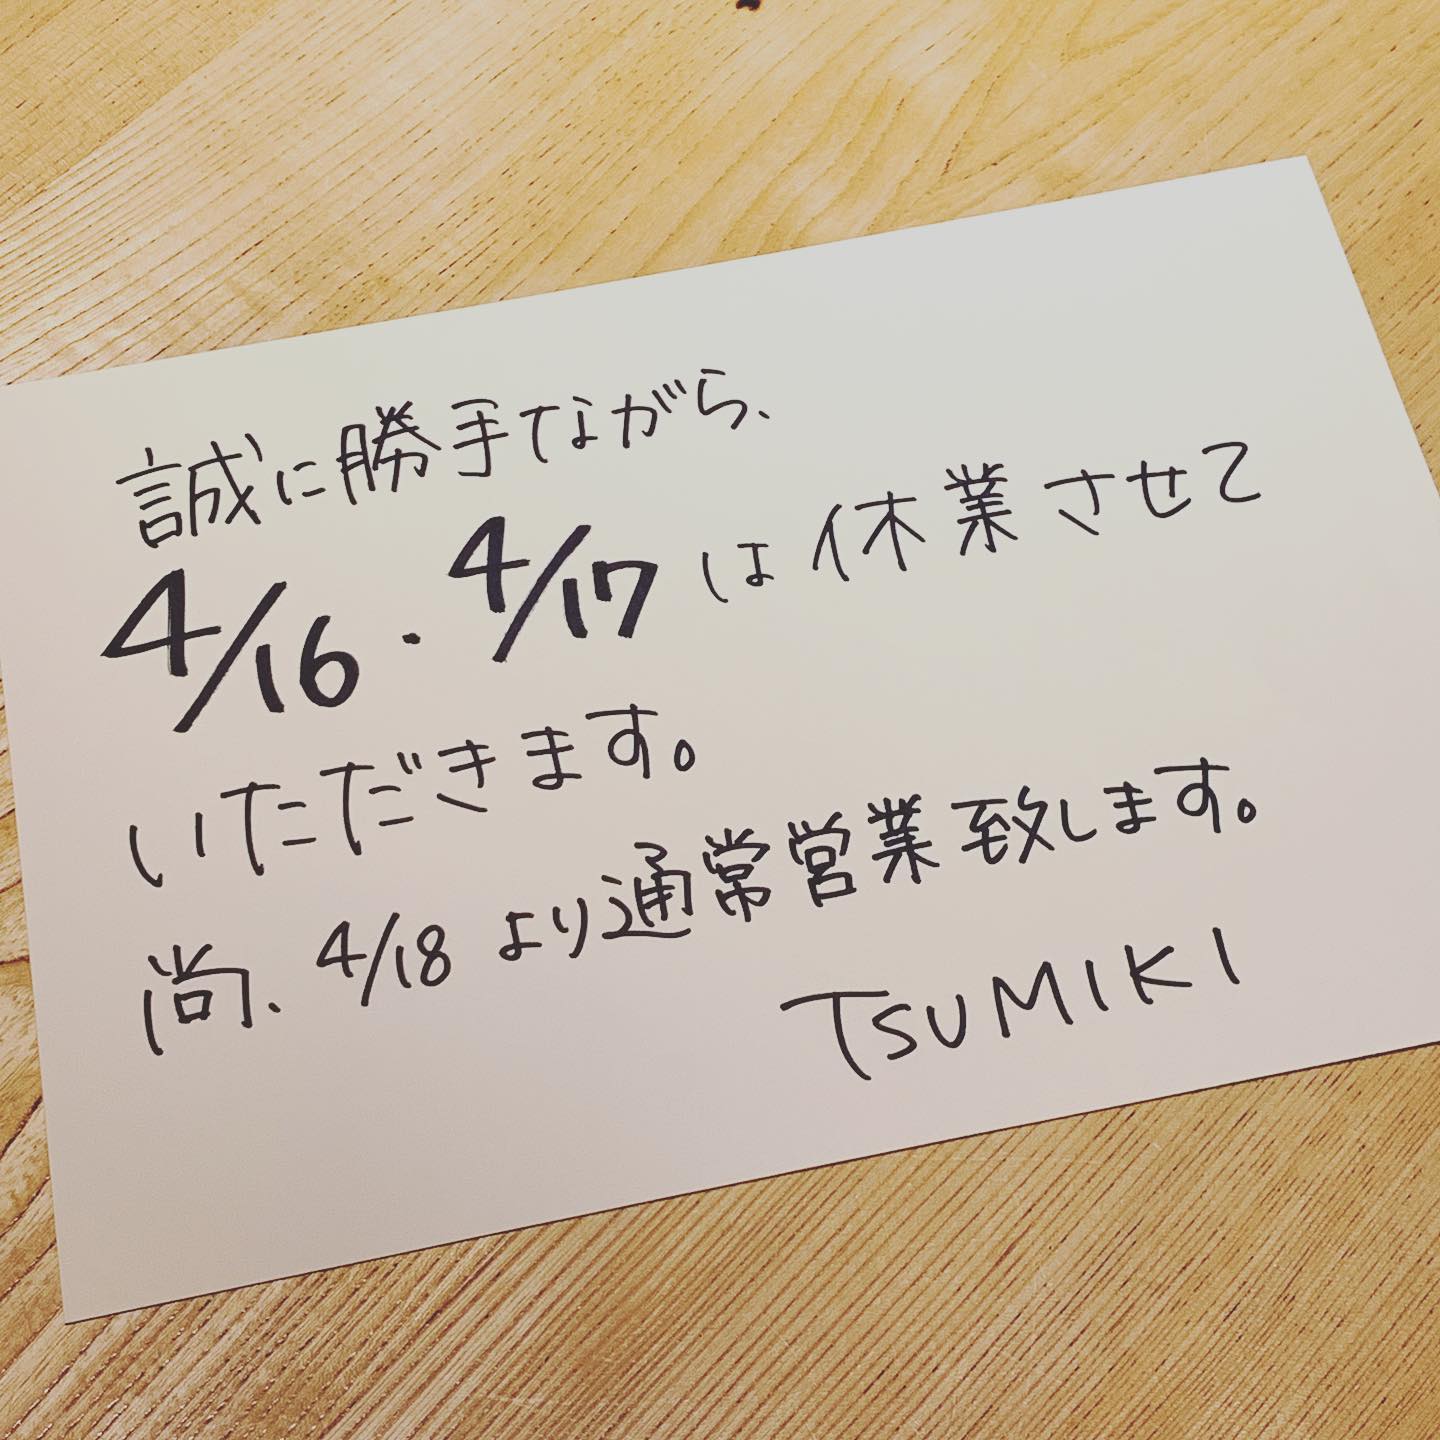 誠に勝手ながら、
4/16・4/17は休業させて
いただきます。
尚、4/18より通常営業致します。
TSUMIKI